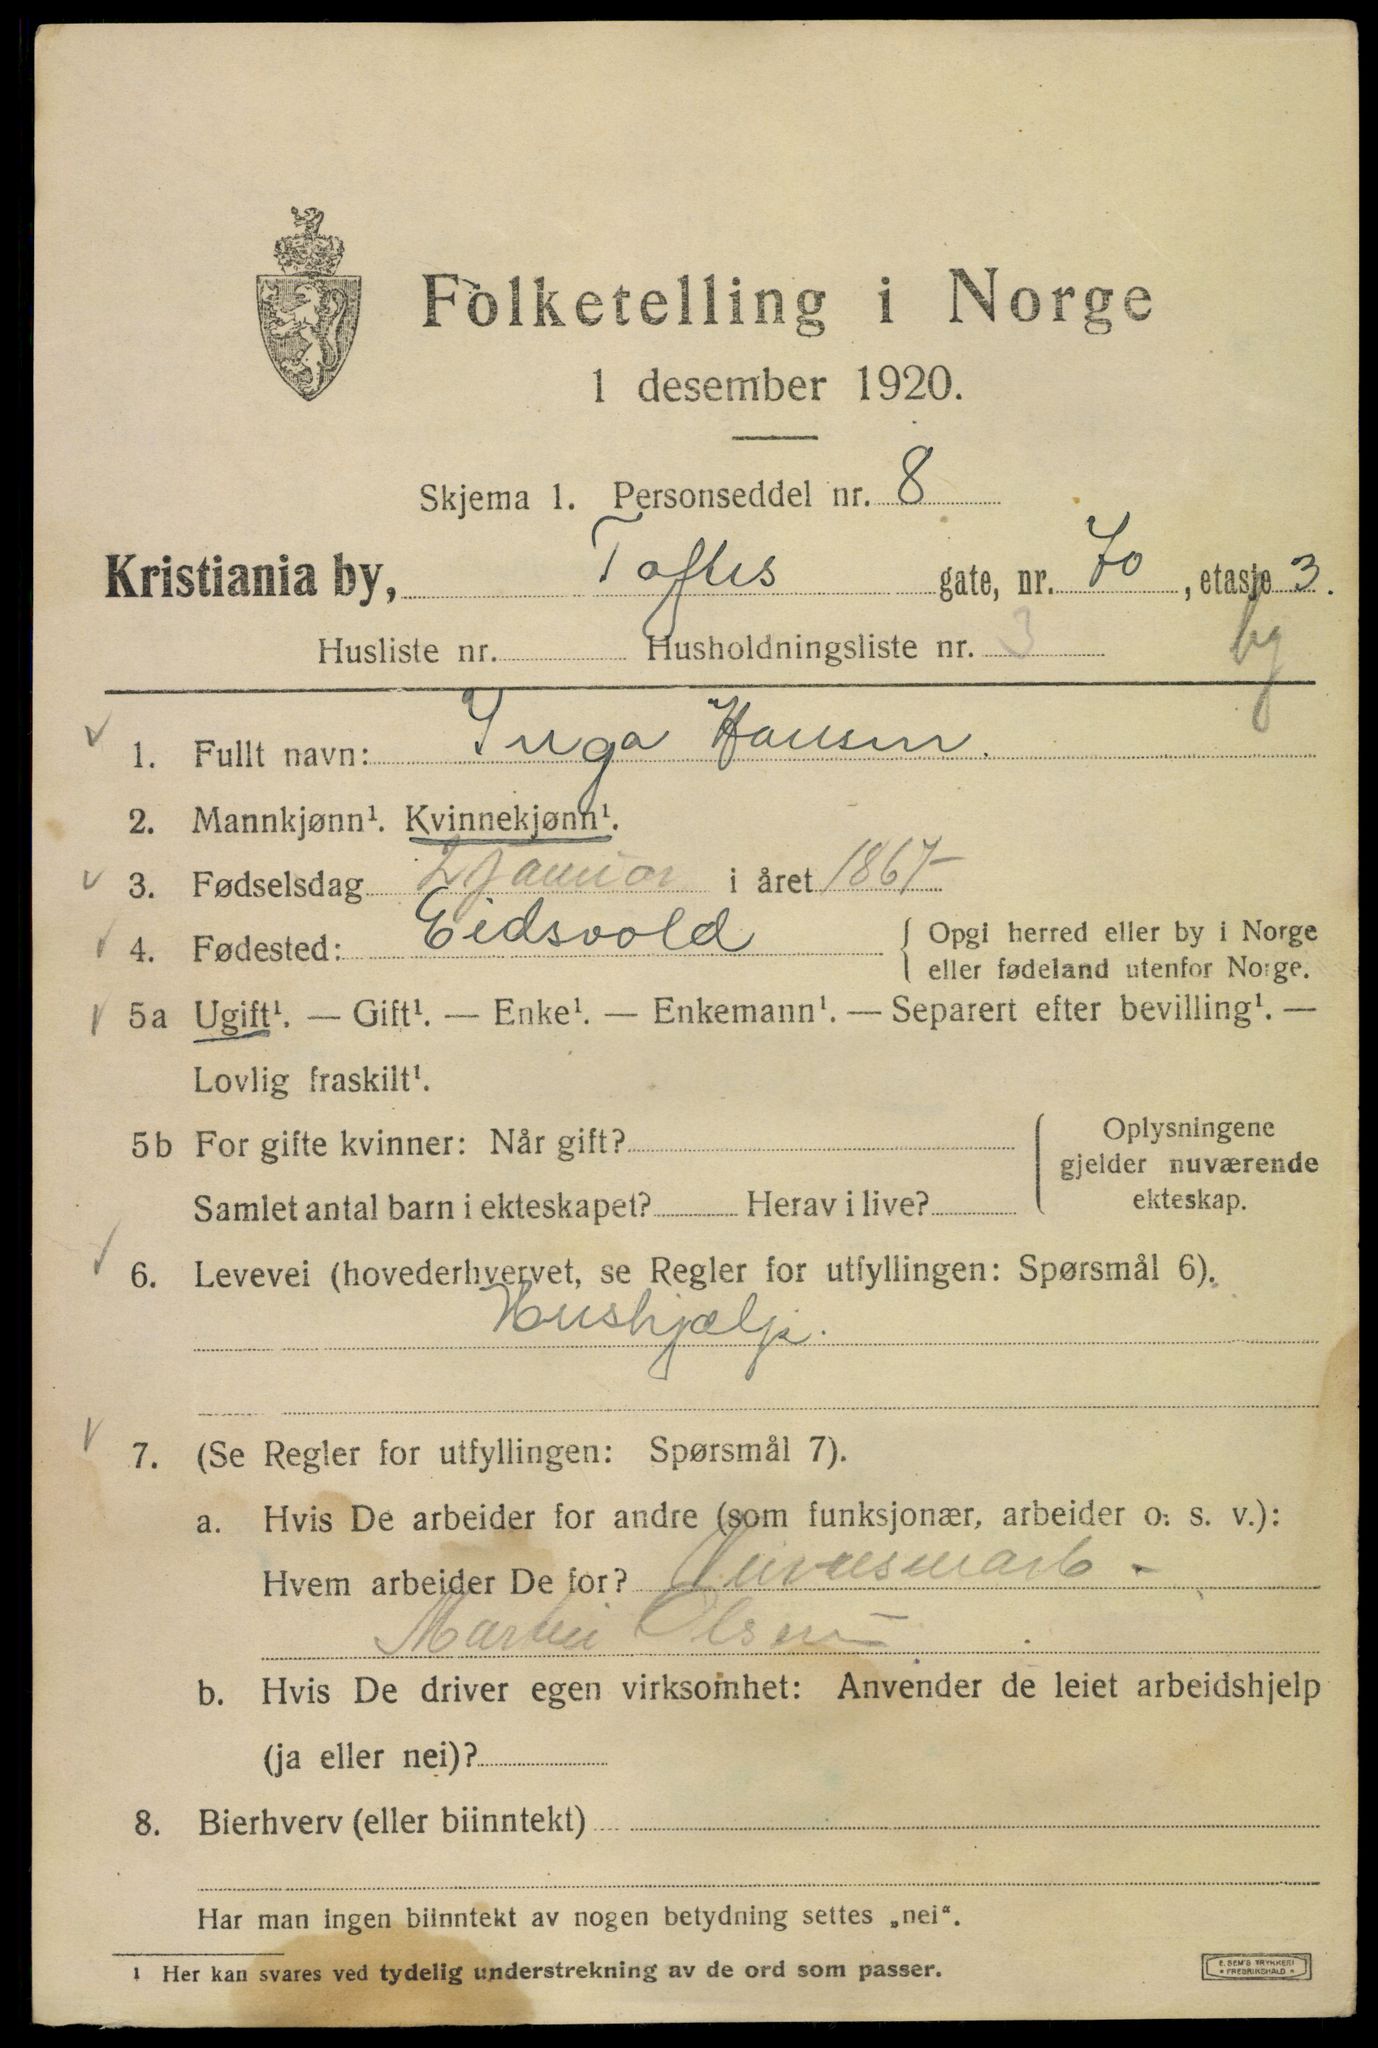 Folketelling i Norge
1 desember 1920.
Skjema 1. Personseddel nr. 8
Kristiania by, Toftes gate, nr. 70, etasje 3.
Husliste nr. Husholdningsliste nr. 3 bg
1. Fullt navn: Inga Hansen.
2. Mannkjønn¹. Kvinnekjønn¹.
3. Fødselsdag 2 Januar i året 1867
4. Fødested: Eidsvold { Opgi herred eller by i Norge
eller fødeland utenfor Norge.
5a Ugift¹. — Gift¹. — Enke¹. — Enkemann¹. — Separert efter bevilling¹. —
Lovlig fraskilt¹.
5b For gifte kvinner: Når gift? { Oplysningene
gjelder nuværende
Samlet antal barn i ekteskapet? Herav i live? ekteskap.
6. Levevei (hovederhvervet, se Regler for utfyllingen: Spørsmål 6).
Hushjælp.
7. (Se Regler for utfyllingen: Spørsmål 7).
a. Hvis De arbeider for andre (som funksjonær, arbeider o. s. v.):
Hvem arbeider De for?
Martin Olsen
b. Hvis De driver egen virksomhet: Anvender de leiet arbeidshjelp
(ja eller nei)?
8. Bierhverv (eller biinntekt)
Har man ingen biinntekt av nogen betydning settes „nei“.
1 Her kan svares ved tydelig understrekning av de ord som passer.
E. SEM'S TRYKKERI
* FREDRIKSHALD *